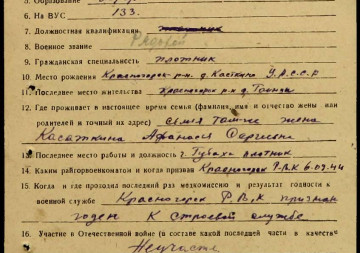 5. Образование
6. На ВУС 133.
7. Должностная квалификация
8. Военное звание Рядовой
9. Гражданская специальность плотник
10. Место рождения Красногорск р-н д. Касткино У.А.С.С.Р
11. Последнее место жительства Красногорск р-н д.
12. Где проживает в настоящее время семья (фамилия, имя и отчество жены или
родителей и точный их адрес) семья Томже жена
Касаткина Афанасья Сергеевн
13. Последнее место работы и должность г. Губаха плотник
14. Каким райгорвоенкоматом и когда призван Красногорск Р.В.К 6-09.44
15. Когда и где проходил последний раз медкомиссию и результат годности к
военной службе Красногорск Р.В.К признан
годен к строевой службе
16. Участие в Отечественной войне (в составе какой последней части в качестве
Неучаств